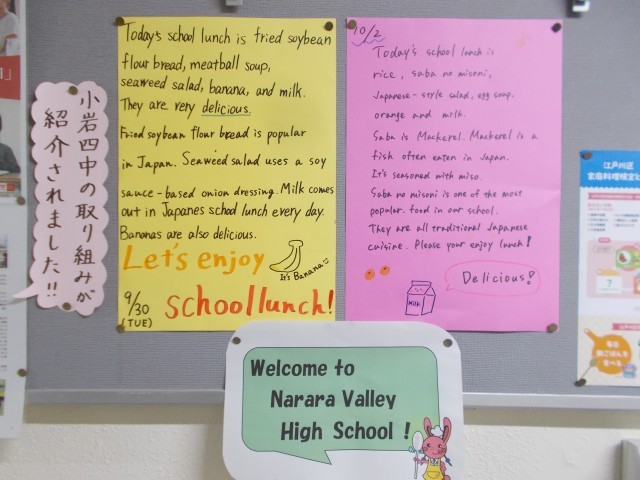 小岩四中の取り組みが
紹介されました!!
Today's school lunch is fried soybean
flour bread, meatball soup,
seaweed salad, banana, and milk.
They are very delicious.
Fried soybean flour bread is popular
in Japan. Seaweed salad uses a soy
sauce-based onion dressing. Milk comes
out in Japanes school lunch every day.
Bananas are also delicious.
Let's enjoy
It's Banana
9/30
(TUE)
school lunch!
10/2
Today's school lunch is
rice, saba no misoni,
Japanese-style salad, egg soup.
orange and milk.
Saba is Mackerel. Mackerel is a
fish often eaten in Japan.
It's seasoned with miso.
Saba no misoni is one of the most
popular food in our school.
They are all traditional Japanese
cuisine. Please your enjoy lunch!
Delicious?
Milk
Welcome to
Narara Valley
High School !
江戸川区